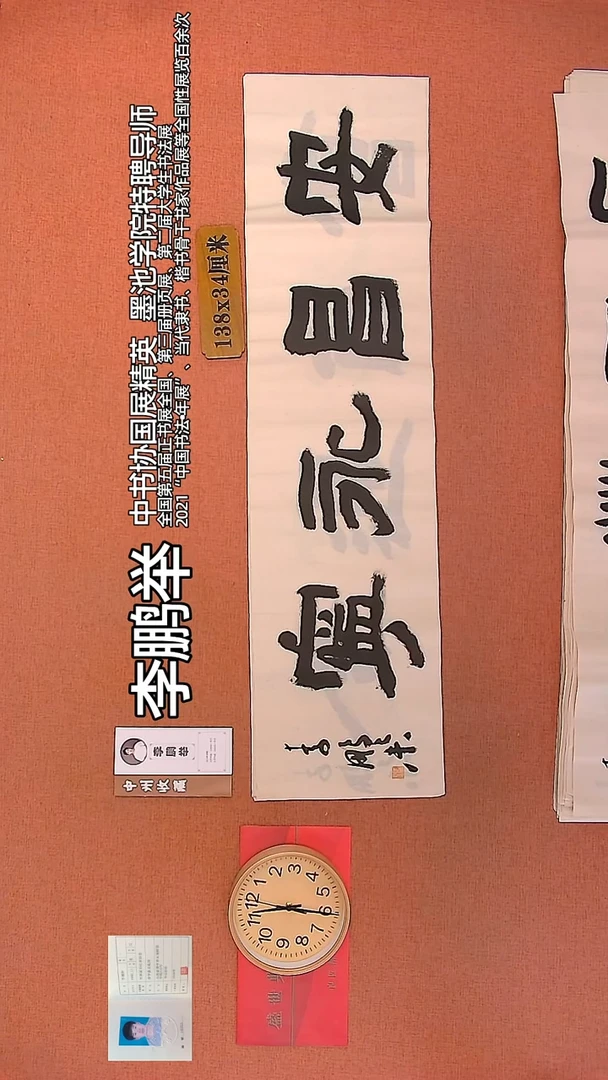 李鹏举
中书协国展精英 墨池学院特聘导师
全国第五届正书展全国、第三届册页展、第二届大学生书法展
2021“中国书法·年展”、当代隶书、楷书骨干书家作品展等全国性展览百余次
138x34厘米
安昌永寧
李鹏举
中州收藏
盛世
12
1
2
3
4
5
6
7
8
9
10
11